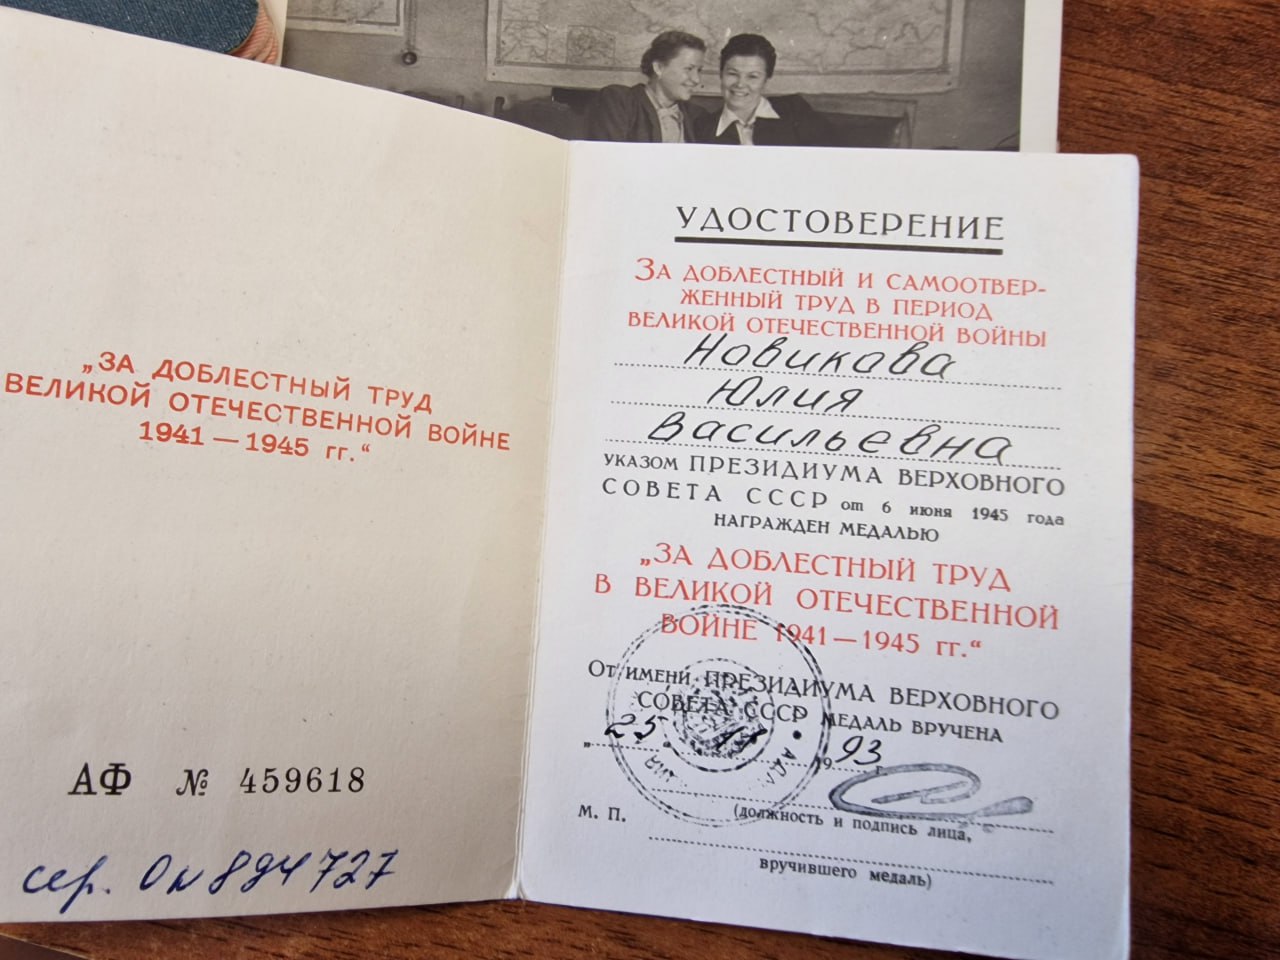 „ЗА ДОБЛЕСТНЫЙ ТРУД
ВЕЛИКОЙ ОТЕЧЕСТВЕННОЙ ВОЙНЕ
1941 — 1945 гг.“
АФ № 459618
сер. 0 № 894727
УДОСТОВЕРЕНИЕ
ЗА ДОБЛЕСТНЫЙ И САМООТВЕР-
ЖЕННЫЙ ТРУД В ПЕРИОД
ВЕЛИКОЙ ОТЕЧЕСТВЕННОЙ ВОЙНЫ
Новикова
Юлия
Васильевна
УКАЗОМ ПРЕЗИДИУМА ВЕРХОВНОГО
СОВЕТА СССР от 6 июня 1945 года
НАГРАЖДЕН МЕДАЛЬЮ
„ЗА ДОБЛЕСТНЫЙ ТРУД
В ВЕЛИКОЙ ОТЕЧЕСТВЕННОЙ
ВОЙНЕ 1941 — 1945 гг.“
ОТ ИМЕНИ ПРЕЗИДИУМА ВЕРХОВНОГО
СОВЕТА СССР МЕДАЛЬ ВРУЧЕНА
„25“ 1993 г.
М. П. (должность и подпись лица,
вручившего медаль)